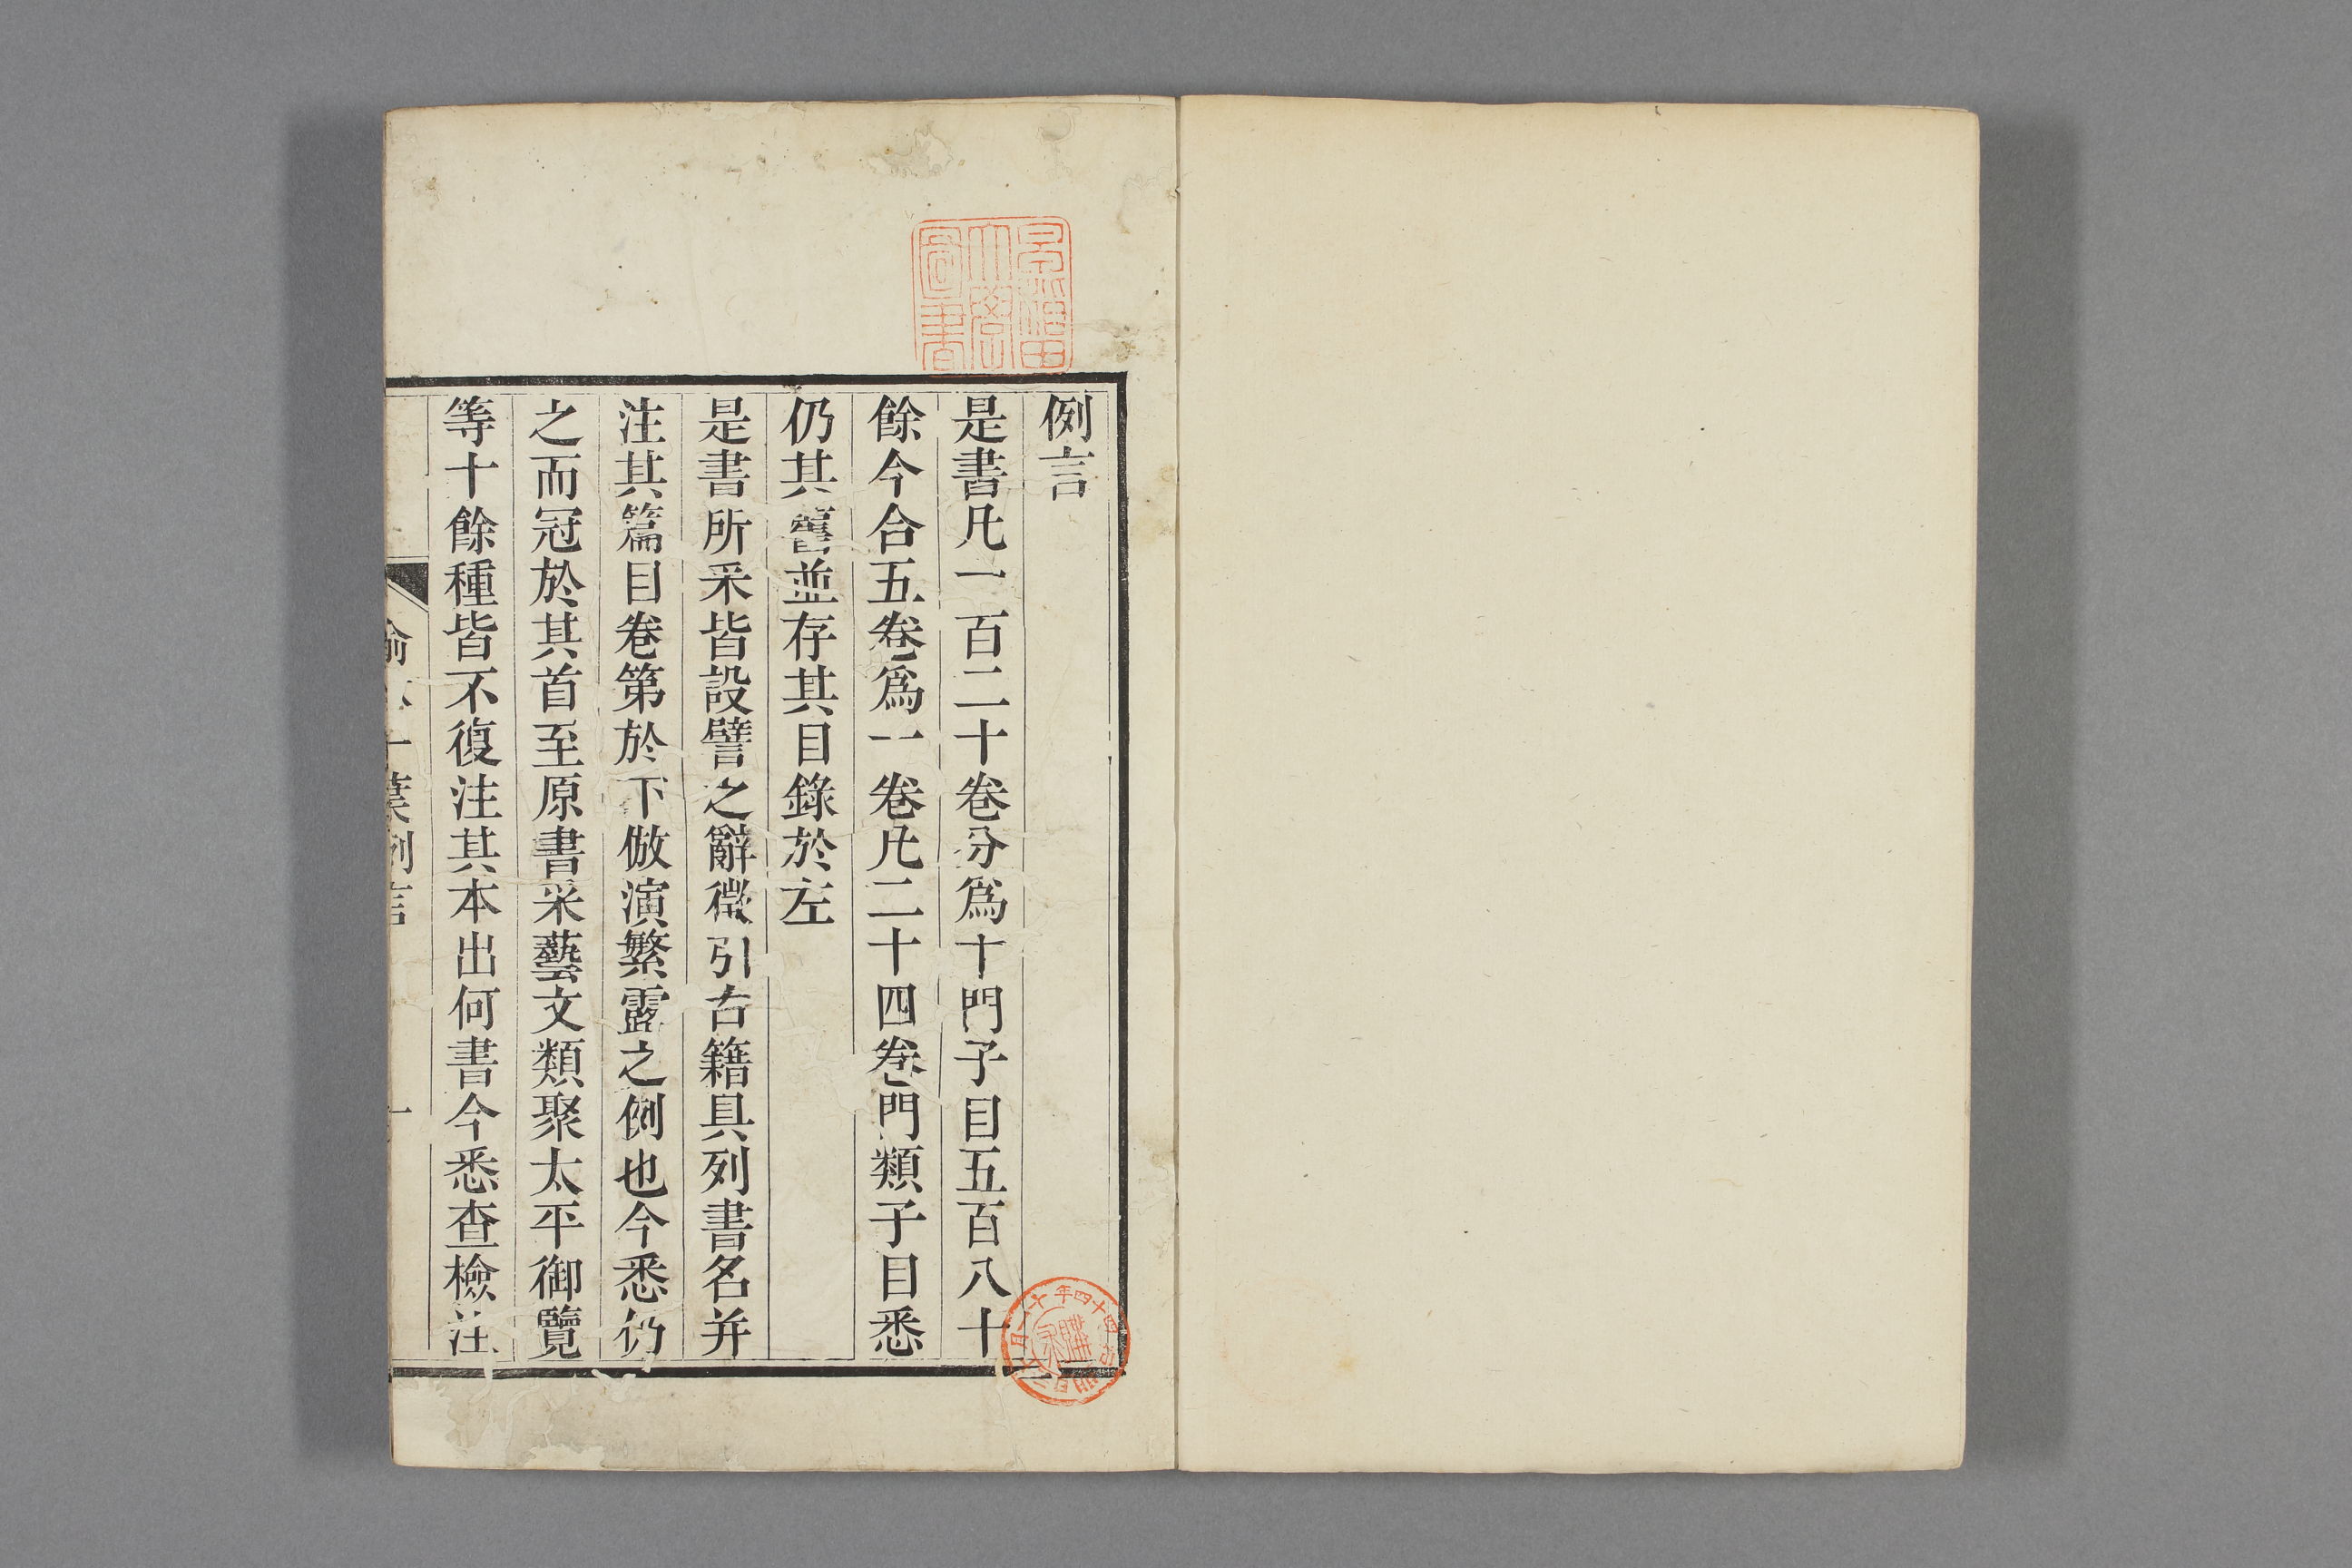 例言
是書凡一百二十卷分爲十門子目五百八十
餘今合五卷爲一卷凡二十四卷門類子目悉
仍其舊並存其目錄於左
是書所采皆設譬之辭徵引古籍具列書名并
注其篇目卷第於下倣演繁露之例也今悉仍
之而冠於其首至原書采藝文類聚太平御覽
等十餘種皆不復注其本出何書今悉查檢注
葉例言
一